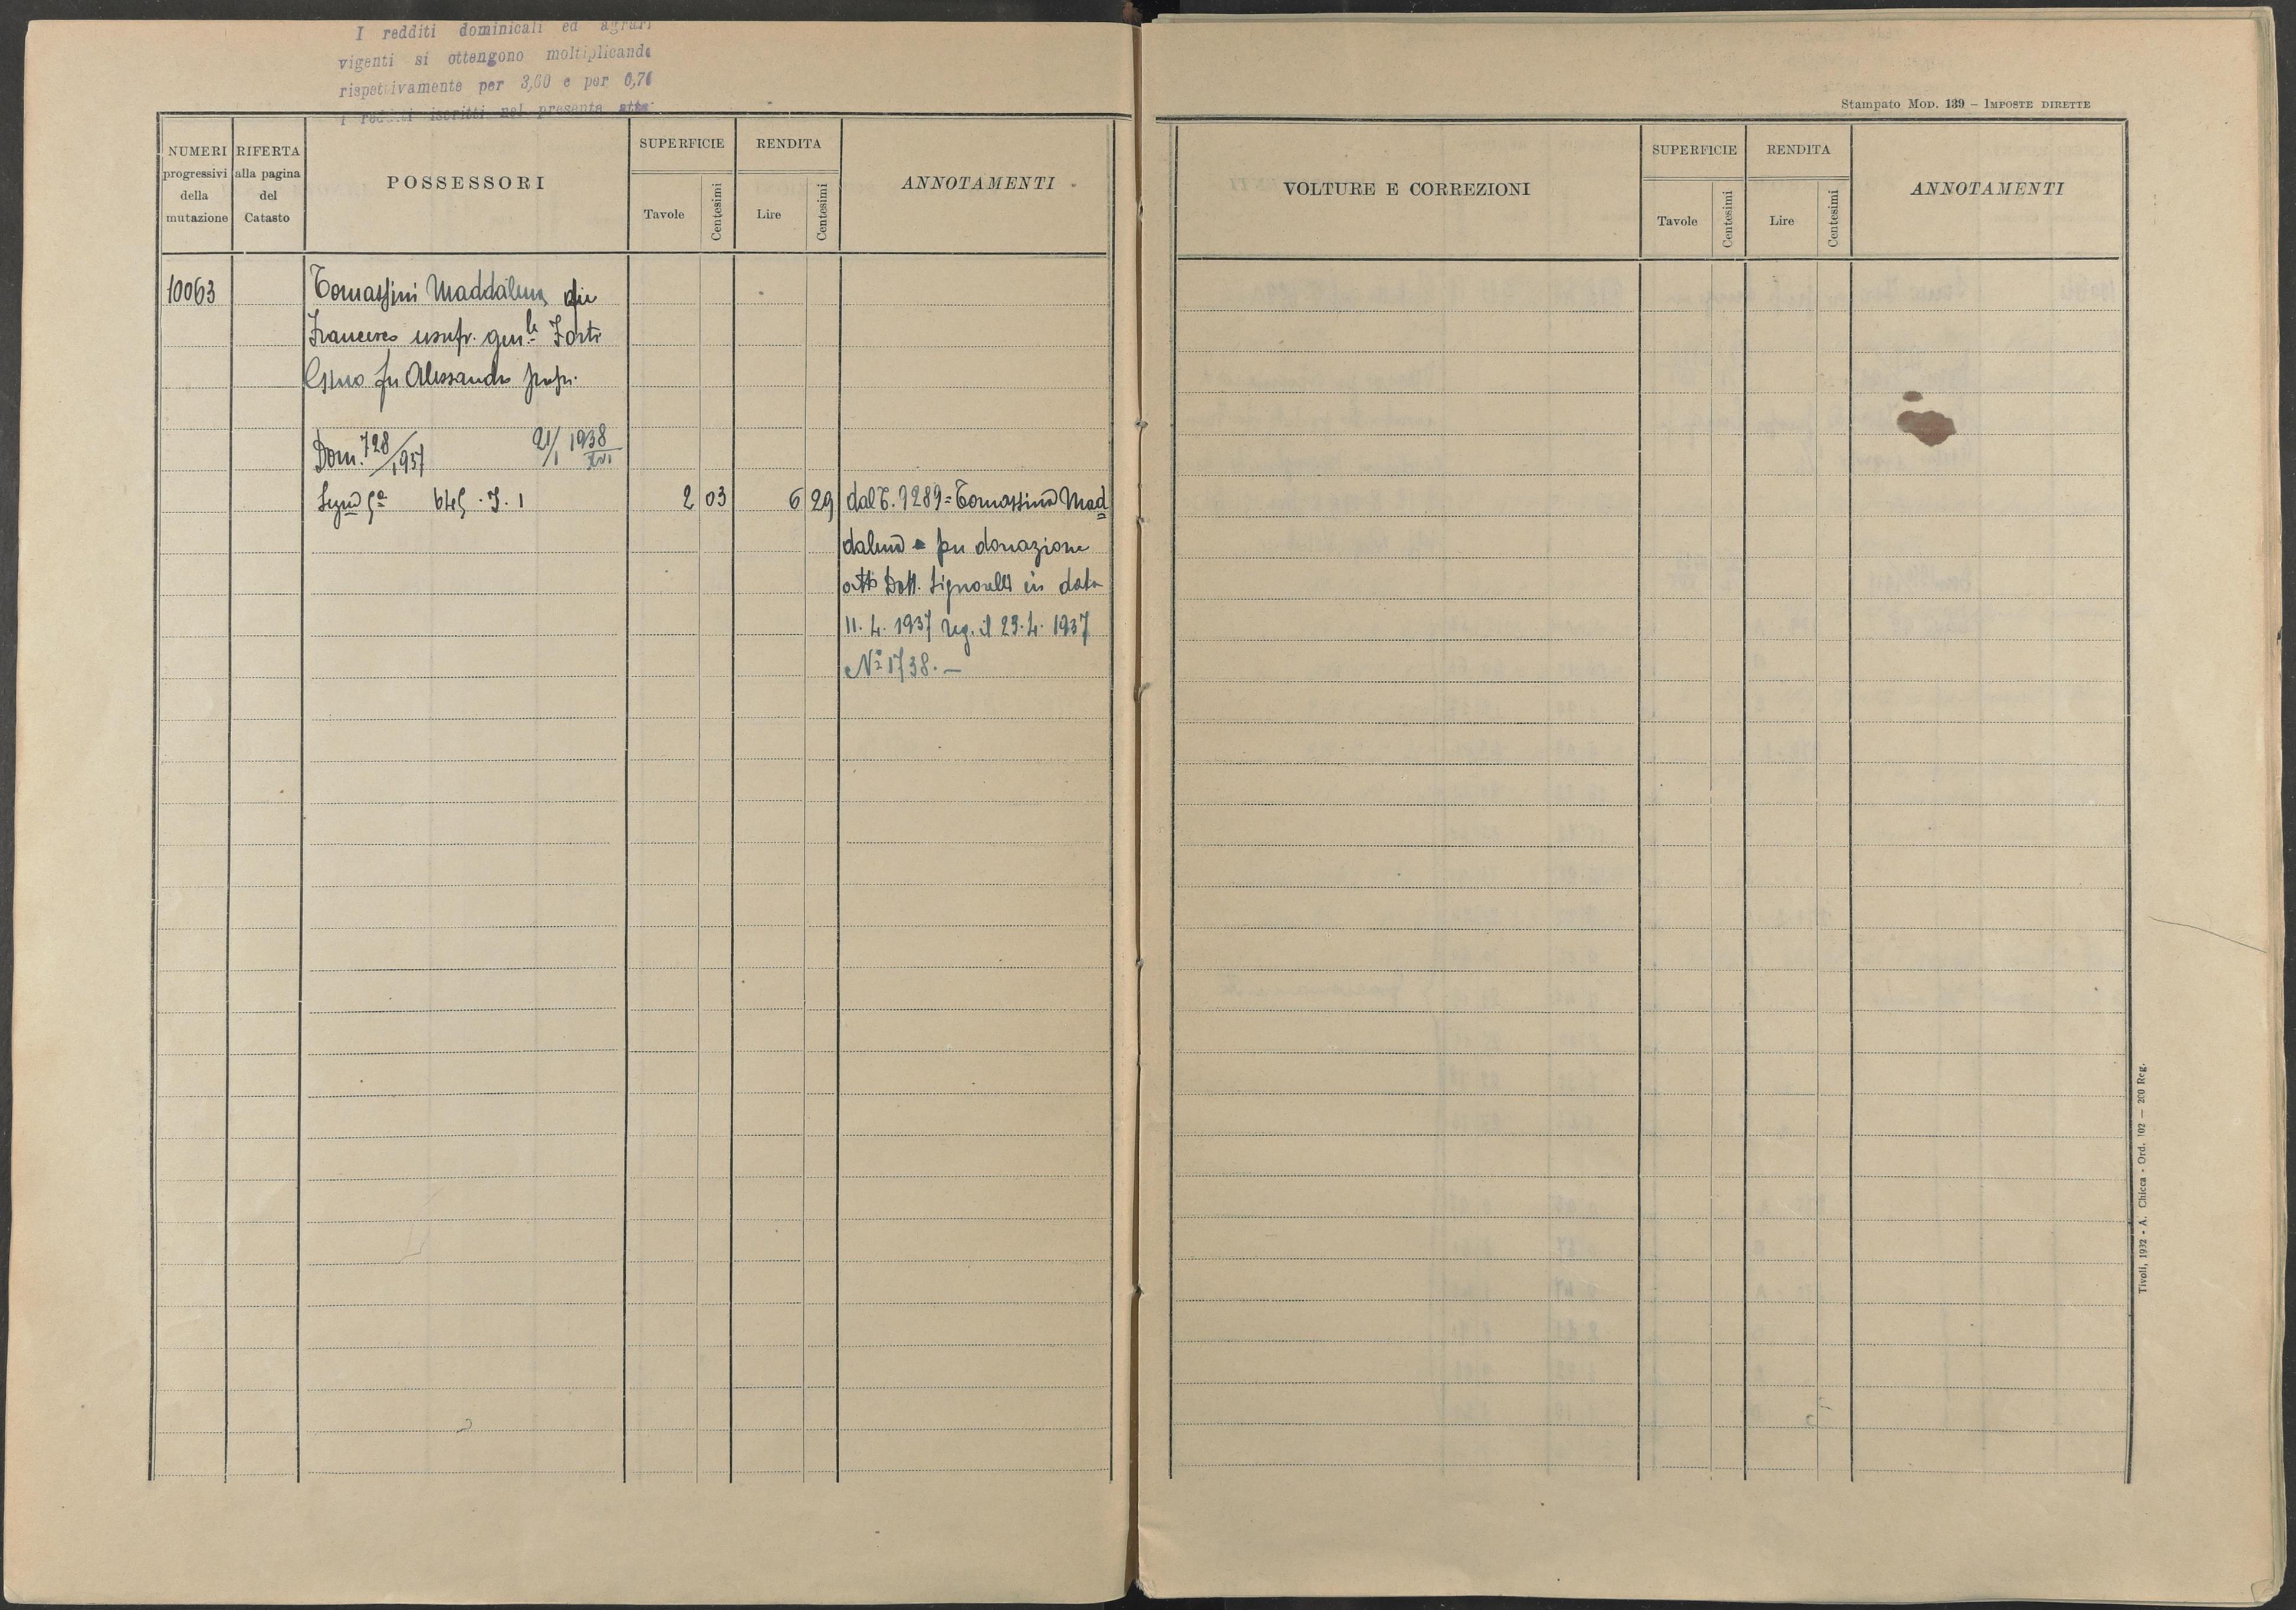 I redditi dominicali ed agrari
vigenti si ottengono moltiplicando
rispettivamente per 3,60 e per 0,76
i redditi iscritti nel presente atto
Stampato MOD. 139 – IMPOSTE DIRETTE
NUMERI progressivi della mutazione
RIFERTA alla pagina del Catasto
POSSESSORI
SUPERFICIE
Tavole
Centesimi
RENDITA
Lire
Centesimi
ANNOTAMENTI
10063
Tomassini Maddalena di
Francesco usufr. gen.le Forti
fu Alessandro propr.
Dom. 728/1937 21/1 1938 XVI
Sez. 5a 645 . I. 1 2 03 6 29
dal T. 9289 = Tomassini Mad
dalena per donazione
atto Dott. Signorelli in data
11. 4. 1937 reg. il 23. 4. 1937
No 1738. —
VOLTURE E CORREZIONI
SUPERFICIE
Tavole
Centesimi
RENDITA
Lire
Centesimi
ANNOTAMENTI
Tivoli, 1932 - A. Chicca - Ord. 102 — 200 Reg.